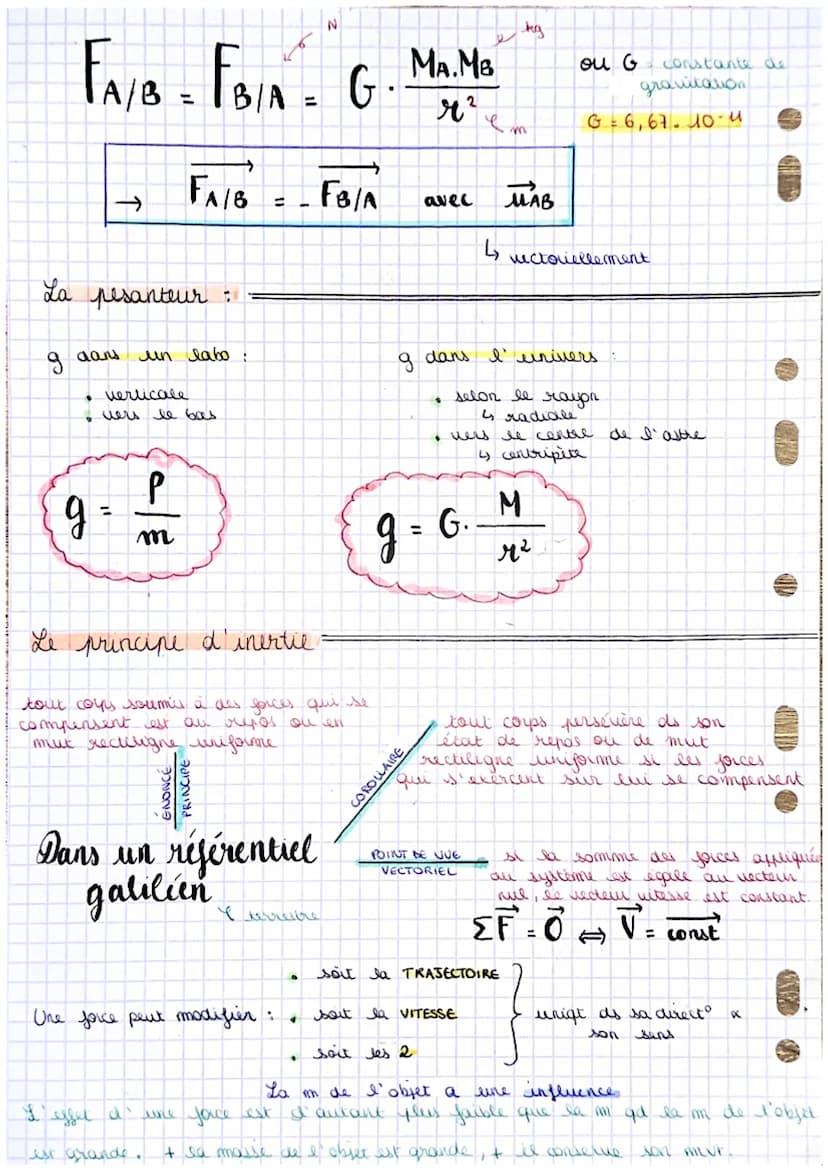 N
kg
F A/B = F B/A = G . MA.MB / r²
m
où G = constante de
gravitation
G = 6,67 . 10-11
→ F A/B = - F B/A avec u AB
↳ vectoriellement
La pesanteur :
g dans un labo :
• verticale
• vers le bas
g = P / m
g dans l'univers :
• selon le rayon
↳ radiale
• vers le centre de l'astre
↳ centripète
g = G . M / r²
Le principe d'inertie
tout corps soumis à des forces qui se
compensent est au repos ou en
mvt rectiligne uniforme
ÉNONCÉ
PRINCIPE
COROLLAIRE
tout corps persévère ds son
état de repos ou de mvt
rectiligne uniforme si les forces
qui s'exercent sur lui se compensent
Dans un référentiel
galiléen
terrestre
POINT DE VUE
VECTORIEL
si la somme des forces appliquées
au système est égale au vecteur
nul, le vecteur vitesse est constant.
ΣF = 0 ⇔ V = const
Une force peut modifier :
• soit la TRAJECTOIRE
• soit la VITESSE
• soit les 2
uniqt ds sa direct° &
son sens
La m de l'objet a une influence
L'effet d'une force est d'autant plus faible que la m qd la m de l'objet
est grande. + la masse de l'objet est grande, + il conserve son mvt.